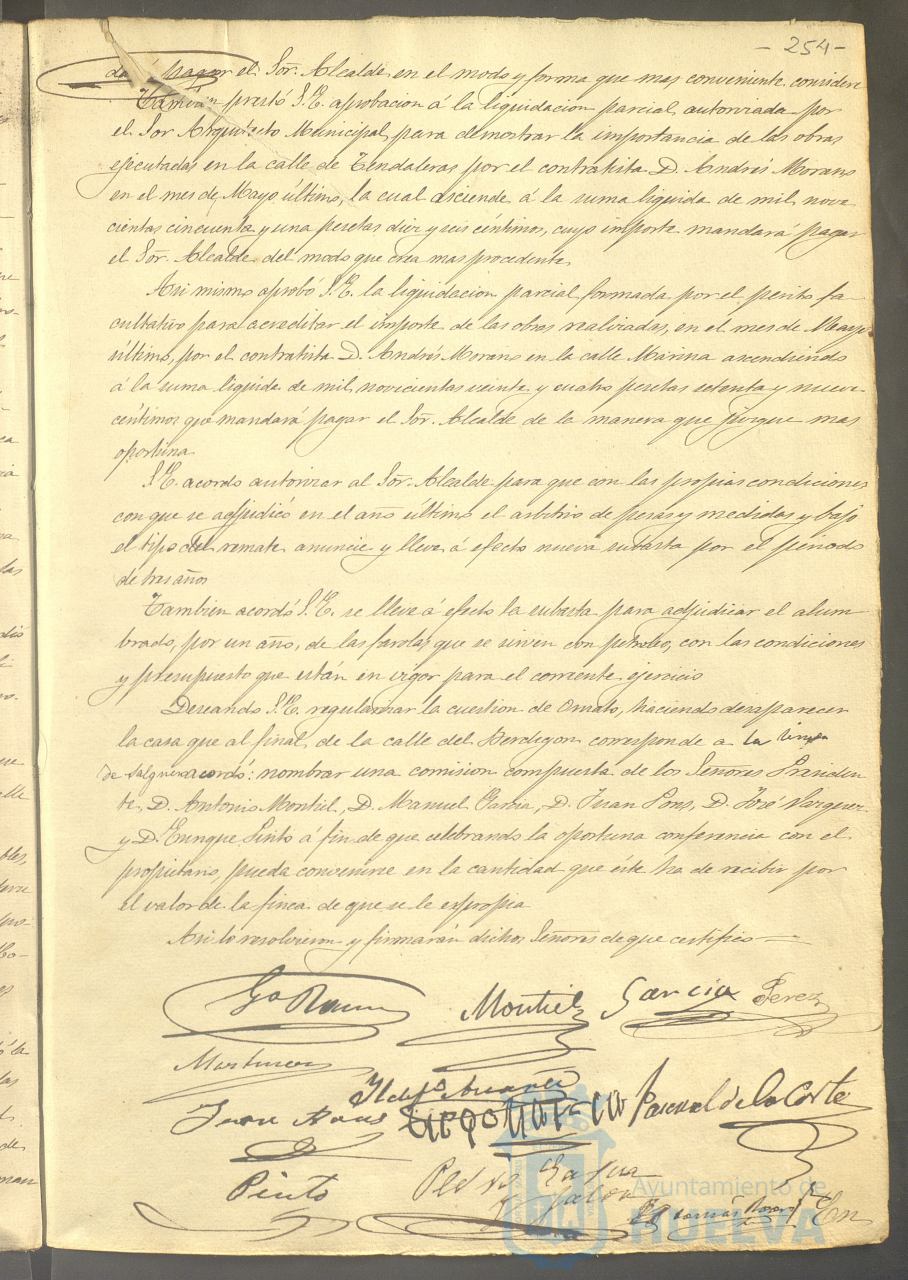 - 254 -
pagar el Sor. Alcalde en el modo y forma que mas conveniente considere
Tambien prestó S.E. aprobacion á la liquidacion parcial autorizada por
el Sor Arquitecto Municipal para demostrar la importancia de las obras
ejecutadas en la calle de Tendaleras por el contratista D. Andrés Morans
en el mes de Mayo último, la cual asciende á la suma liquida de mil nove
cientas cincuenta y una pesetas diez y seis céntimos, cuyo importe mandará pagar
el Sor. Alcalde del modo que crea mas procedente.
Asi mismo aprobó S.E. la liquidacion parcial formada por el perito fa
cultativo para acreditar el importe de las obras realizadas, en el mes de Mayo
último, por el contratista D. Andrés Morans en la calle Marina ascendiendo
á la suma liquida de mil novecientas veinte y cuatro pesetas setenta y nueve
céntimos que mandará pagar el Sor. Alcalde de la manera que juzgue mas
oportuna
S.E. acordo autorizar al Sor. Alcalde para que con las propias condiciones
con que se adjudicó en el año último el arbitrio de pesas y medidas y bajo
el tipo del remate anuncie y lleve á efecto nueva subasta por el periodo
de tres años
Tambien acordó S.E. se lleve á efecto la subasta para adjudicar el alum
brado, por un año, de las farolas que se sirven con petroleo, con las condiciones
y presupuesto que están en vigor para el corriente ejercicio
Deseando S.E. regularizar la cuestion de Ornato, haciendo desaparecer
la casa que al final de la calle del Berdigon corresponde a la
de acordó: nombrar una comision compuesta de los Señores Presiden
te, D. Antonio Montiel, D. Manuel Garcia, D. Juan Pons, D. José Vazquez
y D. Enrique Pinto á fin de que celebrando la oportuna conferencia con el
propietario, pueda convenirse en la cantidad que éste ha de recibir por
el valor de la finca de que se le expropia
Asi lo resolvieron y firmarán dichos Señores de que certifico
Montiel Garcia Perez
Martinez
Juan Pascual de la Corte
Pinto
Ayuntamiento de
HUELVA